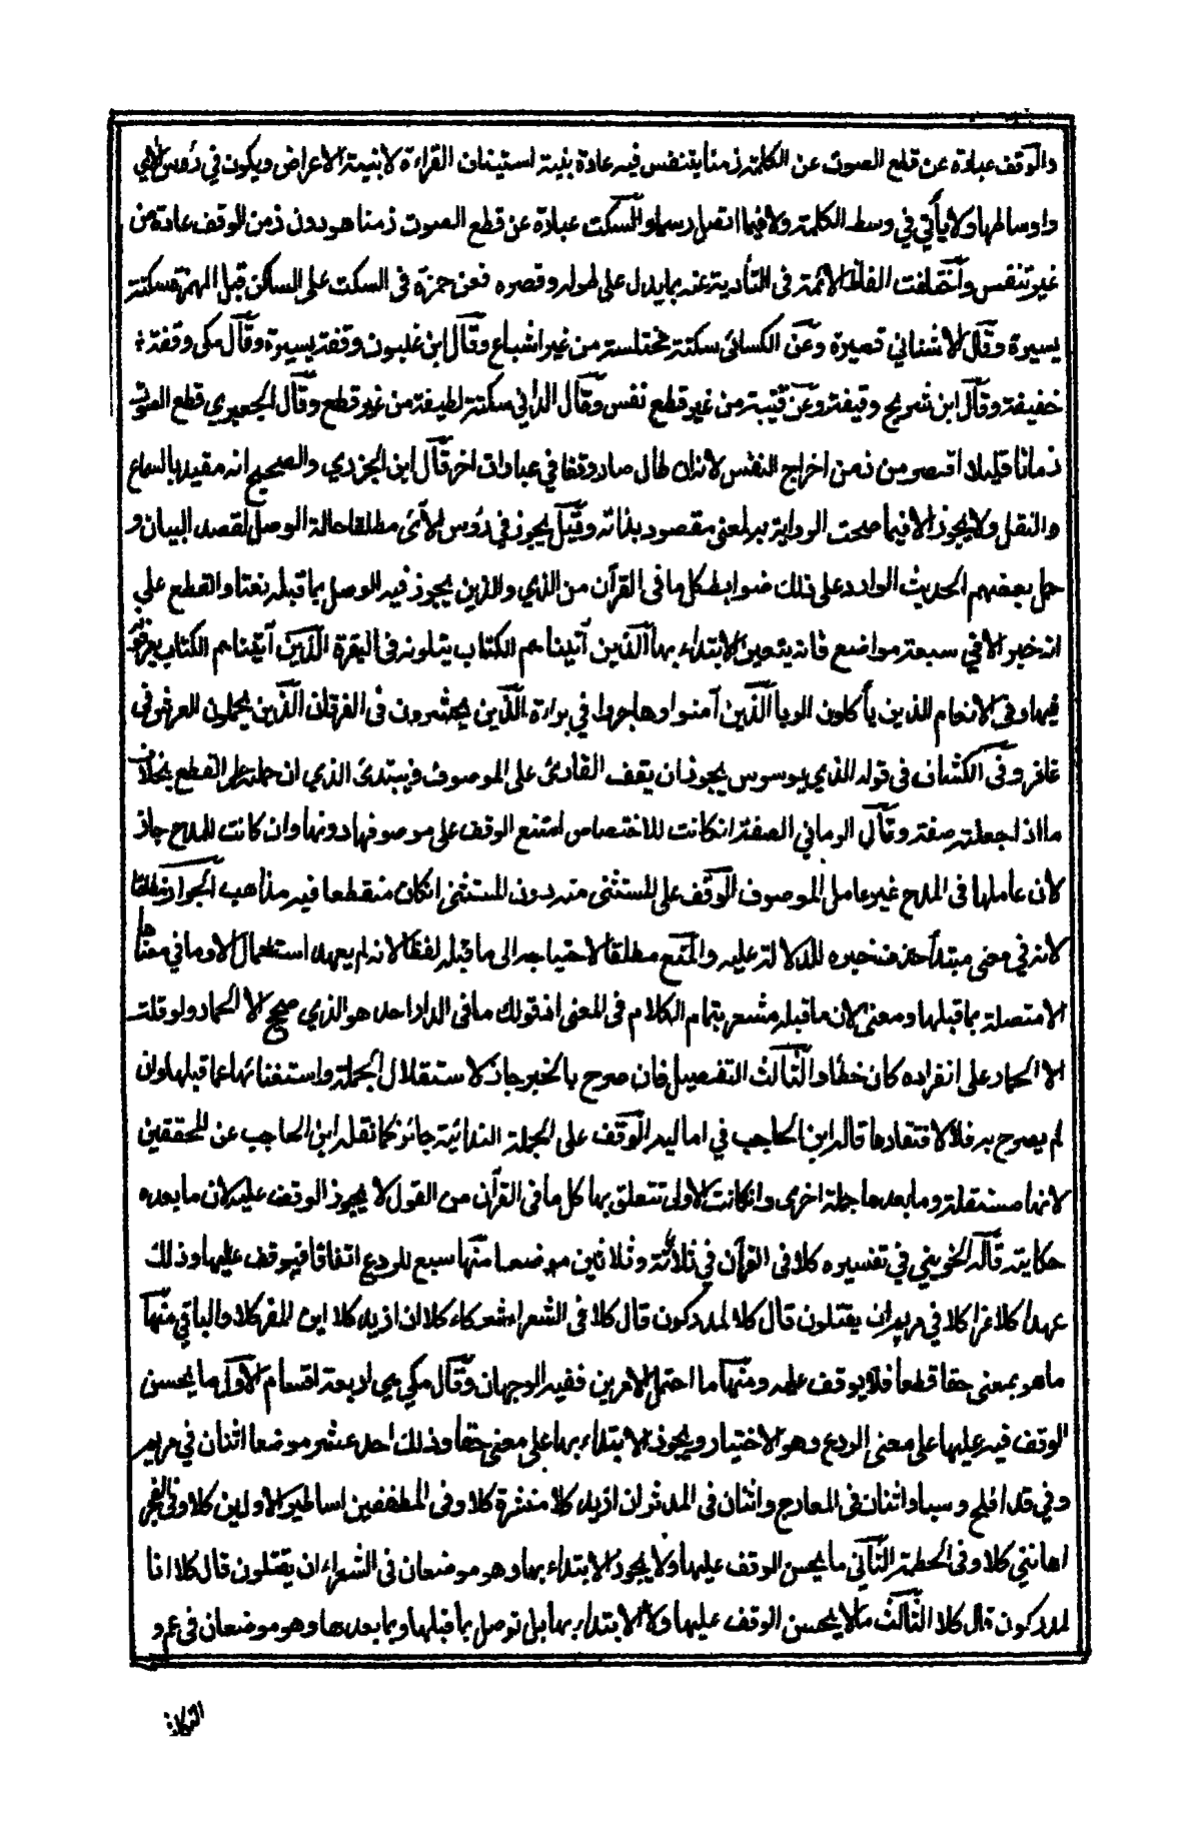 والوقف عبارة عن قطع الصوت عن الكلمة زمنا يتنفس فيه عادة بنية استيناف القراءة لا بنية الاعراض ويكون في رؤس الآي
واوساطها ولا يأتي في وسط الكلمة ولا فيما اتصل رسما والسكت عبارة عن قطع الصوت زمنا هو دون زمن الوقف عادة من
غير تنفس واختلفت الفاظ الائمة في التأدية عنه بما يدل على طوله وقصره فعن حمزة في السكت على الساكن قبل الهمزة سكتة
يسيرة وقال الاشناني قصيرة وعن الكسائي سكتة مختلسة من غير اشباع وقال ابن غلبون وقفة يسيرة وقال مكي وقفة
خفيفة وقال ابن شريح وقيفة وعن قتيبة من غير قطع نفس وقال الداني سكتة لطيفة من غير قطع وقال الجعبري قطع الصوت
زمانا قليلا اقصر من زمن اخراج النفس لانه ان طال صار وقفا في عبارات اخر قال ابن الجزري والصحيح انه مقيد بالسماع
والنقل ولا يجوز الا فيما صحت الرواية به لمعنى مقصود بذاته وقيل يجوز في رؤس الآي مطلقا حالة الوصل لقصد البيان و
حمل بعضهم الحديث الوارد على ذلك ضوابط كل ما في القرآن من الذي والذين يجوز فيه الوصل بما قبله نعتا والقطع على
انه خبر الا في سبعة مواضع فانه يتعين الابتداء بها الذين آتيناهم الكتاب يتلونه في البقرة الذين آتيناهم الكتاب يعرفونه
فيها وفي الانعام الذين يأكلون الربا الذين آمنوا وهاجروا في براءة الذين يحشرون في الفرقان الذين يحملون العرش في
غافر وفي الكشاف في قوله الذي يوسوس يجوز ان يقف القارئ على الموصوف ويبتدئ الذي ان حملته على القطع بخلاف
ما اذا جعلته صفة وقال الرماني الصفة ان كانت للاختصاص امتنع الوقف على موصوفها دونها وان كانت للمدح جاز
لان عاملها في المدح غير عامل الموصوف الوقف على المستثنى منه دون المستثنى ان كان منقطعا فيه مذاهب الجواز مطلقا
لانه في معنى مبتدأ حذف خبره للدلالة عليه والمنع مطلقا لاحتياجه الى ما قبله لفظا لانه لم يعهد استعمال الا وما في معناها
الا متصلة بما قبلها ومعنى لان ما قبله مشعر بتمام الكلام في المعنى اذ قولك ما في الدار احد هو الذي صحح الا الحمار ولو قلت
الا الحمار على انفراده كان خطأ والثالث التفصيل فان صرح بالخبر جاز لاستقلال الجملة واستغنائها عما قبلها وان
لم يصرح به فلا لافتقارها قاله ابن الحاجب في اماليه الوقف على الجملة الندائية جائز كما نقله ابن الحاجب عن المحققين
لانها مستقلة وما بعدها جملة اخرى وان كانت الاولى تتعلق بها كل ما في القرآن من القول لا يجوز الوقف عليه لان ما بعده
حكايته قاله الخويني في تفسيره كلا في القرآن في ثلاثة وثلاثين موضعا منها سبع للردع اتفاقا فيوقف عليها وذلك
عهدا كلا عزا كلا في مريم ان يقتلون قال كلا لمدركون قال كلا في الشعراء شركاء كلا ان ازيد كلا اين المفر كلا والباقي منها
ما هو بمعنى حقا قطعا فلا يوقف عليه ومنها ما احتمل الامرين ففيه الوجهان وقال مكي هي اربعة اقسام الاول ما يحسن
الوقف فيه عليها على معنى الردع وهو الاختيار ويجوز الابتداء بها على معنى حقا وذلك احد عشر موضعا اثنان في مريم
وفي قد افلح وسبا واثنان في المعارج واثنان في المدثر ان ازيد كلا منشرة كلا وفي المطففين اساطير الاولين كلا وفي الفجر
اهانني كلا وفي الحطمة الثاني ما يحسن الوقف عليها ولا يجوز الابتداء بها وهو موضعان في الشعراء ان يقتلون قال كلا انا
لمدركون قال كلا الثالث ما لا يحسن الوقف عليها ولا الابتداء بها بل توصل بما قبلها وبما بعدها وهو موضعان في عم و
التكاثر